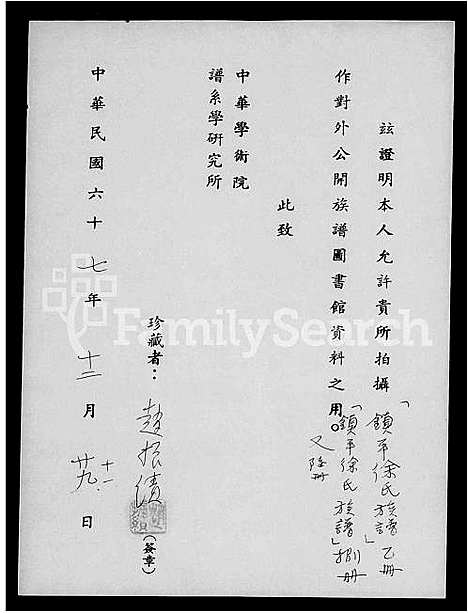 茲證明本人允許貴所拍攝「鎮平徐氏族譜」乙冊
「鎮平徐氏族譜」捌冊
又陸冊
作對外公開族譜圖書館資料之用。
此致
中華學術院
譜系學研究所
珍藏者：趙振績
(簽章)
中華民國六十七年十二月廿九日
十一
FamilySearch